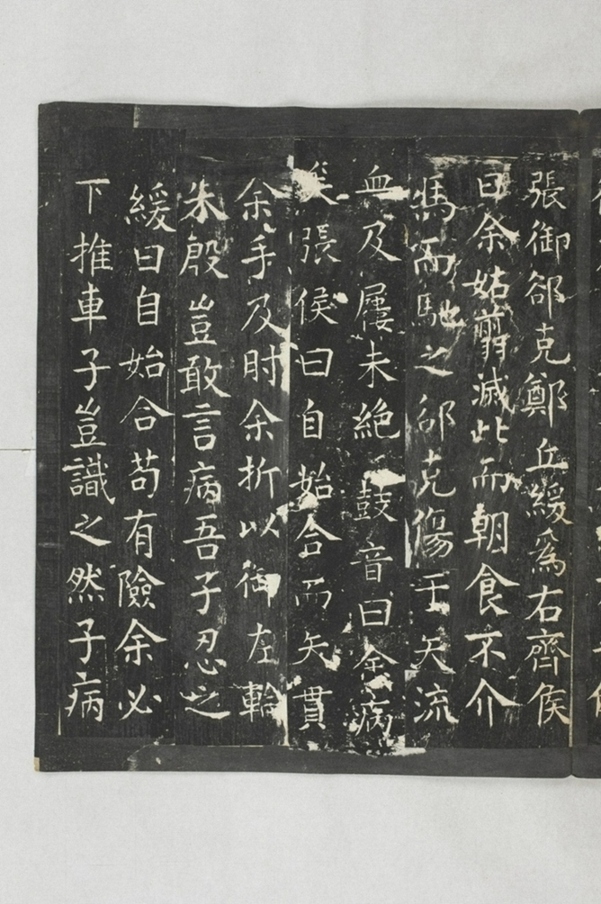 張御郤克鄭丘緩爲右齊侯
曰余姑翦滅此而朝食不介
馬而馳之郤克傷于矢流
血及屨未絶鼓音曰余病
矣張侯曰自始合而矢貫
余手及肘余折以御左輪
朱殷豈敢言病吾子忍之
緩曰自始合苟有險余必
下推車子豈識之然子病